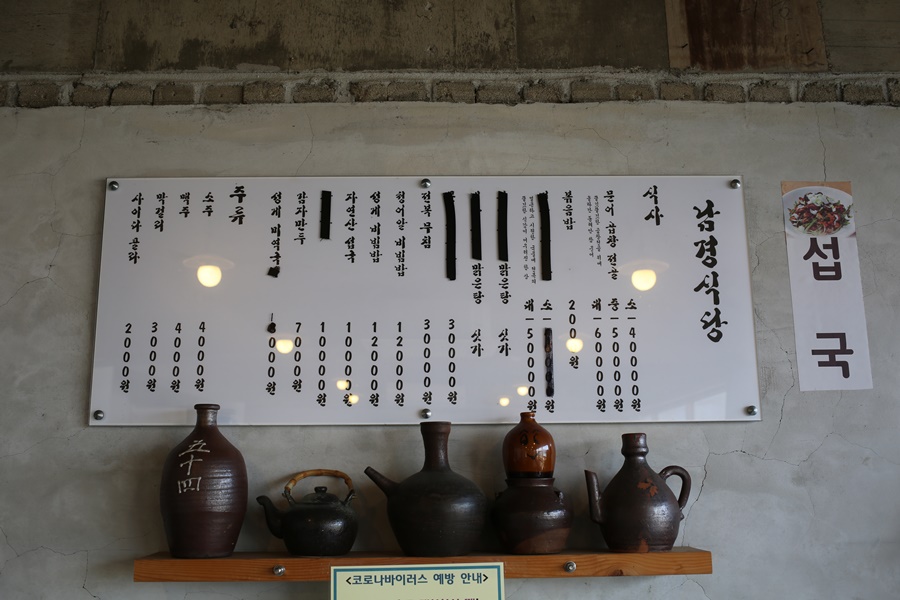 남경식당
식사
문어 곱창 전골
소 – 40000원
중 – 50000원
대 – 60000원
볶음밥
2000원
소 –
원
대 – 50000원
맑은탕
싯가
맑은탕
싯가
30000원
전복 무침
30000원
청어알 비빔밥
12000원
성게 비빔밥
12000원
자연산 섭국
10000원
10000원
감자만두
7000원
성게 미역국
주류
소주
4000원
맥주
4000원
막걸리
3000원
사이다 콜라
2000원
섭국
五十四
<코로나바이러스 예방 안내>